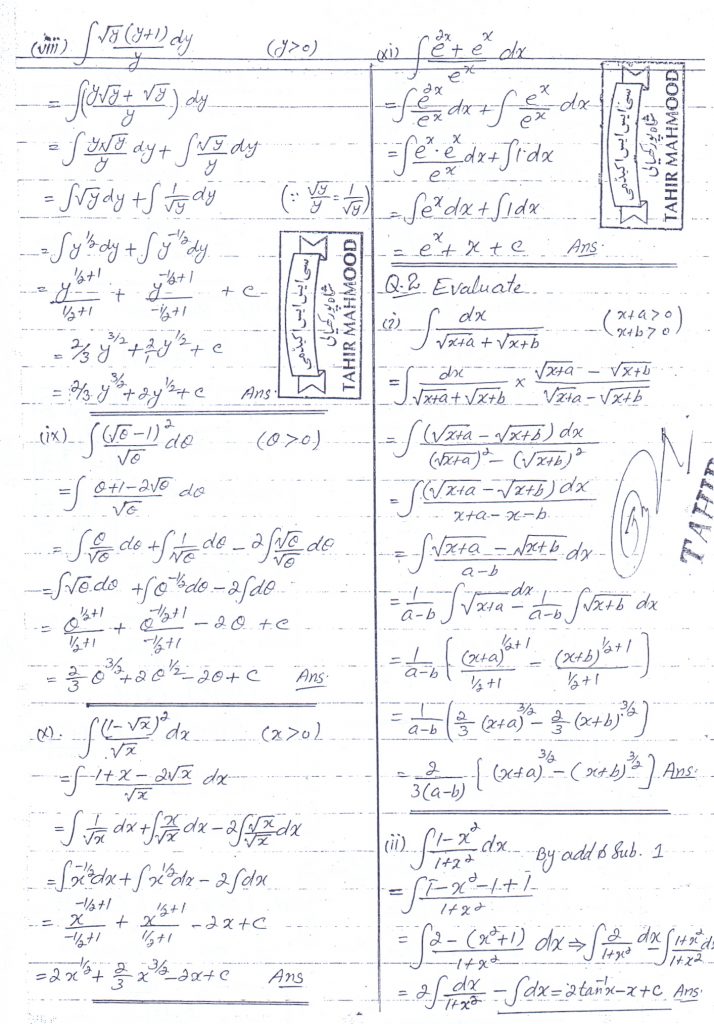 (viii) ∫ √y (y+1)/y dy (y>0)
= ∫ (y√y + √y)/y dy
= ∫ y√y/y dy + ∫ √y/y dy
= ∫√y dy + ∫ 1/√y dy (∵ √y/y = 1/√y)
= ∫y^1/2 dy + ∫y^-1/2 dy
= y^1/2+1/1/2+1 + y^-1/2+1/-1/2+1 + c
= 2/3 y^3/2 + 2/1 y^1/2 + c
= 2/3 y^3/2 + 2y^1/2 + c Ans
سی ایس ایس اکیڈمی
شاہ پور کنجیالی
TAHIR MAHMOOD
(ix) ∫ (√θ-1)^2/√θ dθ (θ>0)
= ∫ θ+1-2√θ/√θ dθ
= ∫ θ/√θ dθ + ∫ 1/√θ dθ - 2∫ √θ/√θ dθ
= ∫√θ dθ + ∫θ^-1/2 dθ - 2∫dθ
= θ^1/2+1/1/2+1 + θ^-1/2+1/-1/2+1 - 2θ + c
= 2/3 θ^3/2 + 2θ^1/2 - 2θ + c Ans.
(x). ∫ (1-√x)^2/√x dx (x>0)
= ∫ 1+x-2√x/√x dx
= ∫ 1/√x dx + ∫ x/√x dx - 2∫ √x/√x dx
= ∫x^-1/2 dx + ∫x^1/2 dx - 2∫dx
= x^-1/2+1/-1/2+1 + x^1/2+1/1/2+1 - 2x + c
= 2x^1/2 + 2/3 x^3/2 - 2x + c Ans
(xi) ∫ e^2x + e^x/e^x dx
= ∫ e^2x/e^x dx + ∫ e^x/e^x dx
= ∫ e^x·e^x/e^x dx + ∫1·dx
= ∫e^x dx + ∫1dx
= e^x + x + c Ans.
سی ایس ایس اکیڈمی
TAHIR MAHMOOD
Q.2 Evaluate
(i) ∫ dx/√x+a + √x+b (x+a>0
x+b>0)
= ∫ dx/√x+a + √x+b × √x+a - √x+b/√x+a - √x+b
= ∫ (√x+a - √x+b) dx/(√x+a)^2 - (√x+b)^2
= ∫ (√x+a - √x+b) dx/x+a-x-b
= ∫ √x+a - √x+b/a-b dx
= 1/a-b ∫ √x+a dx - 1/a-b ∫√x+b dx
= 1/a-b [ (x+a)^1/2+1/1/2+1 - (x+b)^1/2+1/1/2+1 ]
= 1/a-b [ 2/3 (x+a)^3/2 - 2/3 (x+b)^3/2 ]
= 2/3(a-b) [ (x+a)^3/2 - (x+b)^3/2 ] Ans.
TAHIR
(ii) ∫ 1-x^2/1+x^2 dx By add & Sub. 1
= ∫ 1-x^2-1+1/1+x^2
= ∫ 2-(x^2+1)/1+x^2 dx ⇒ ∫ 2/1+x^2 dx - ∫ 1+x^2/1+x^2 d
= 2∫ dx/1+x^2 - ∫dx = 2tan^-1 x - x + c Ans.